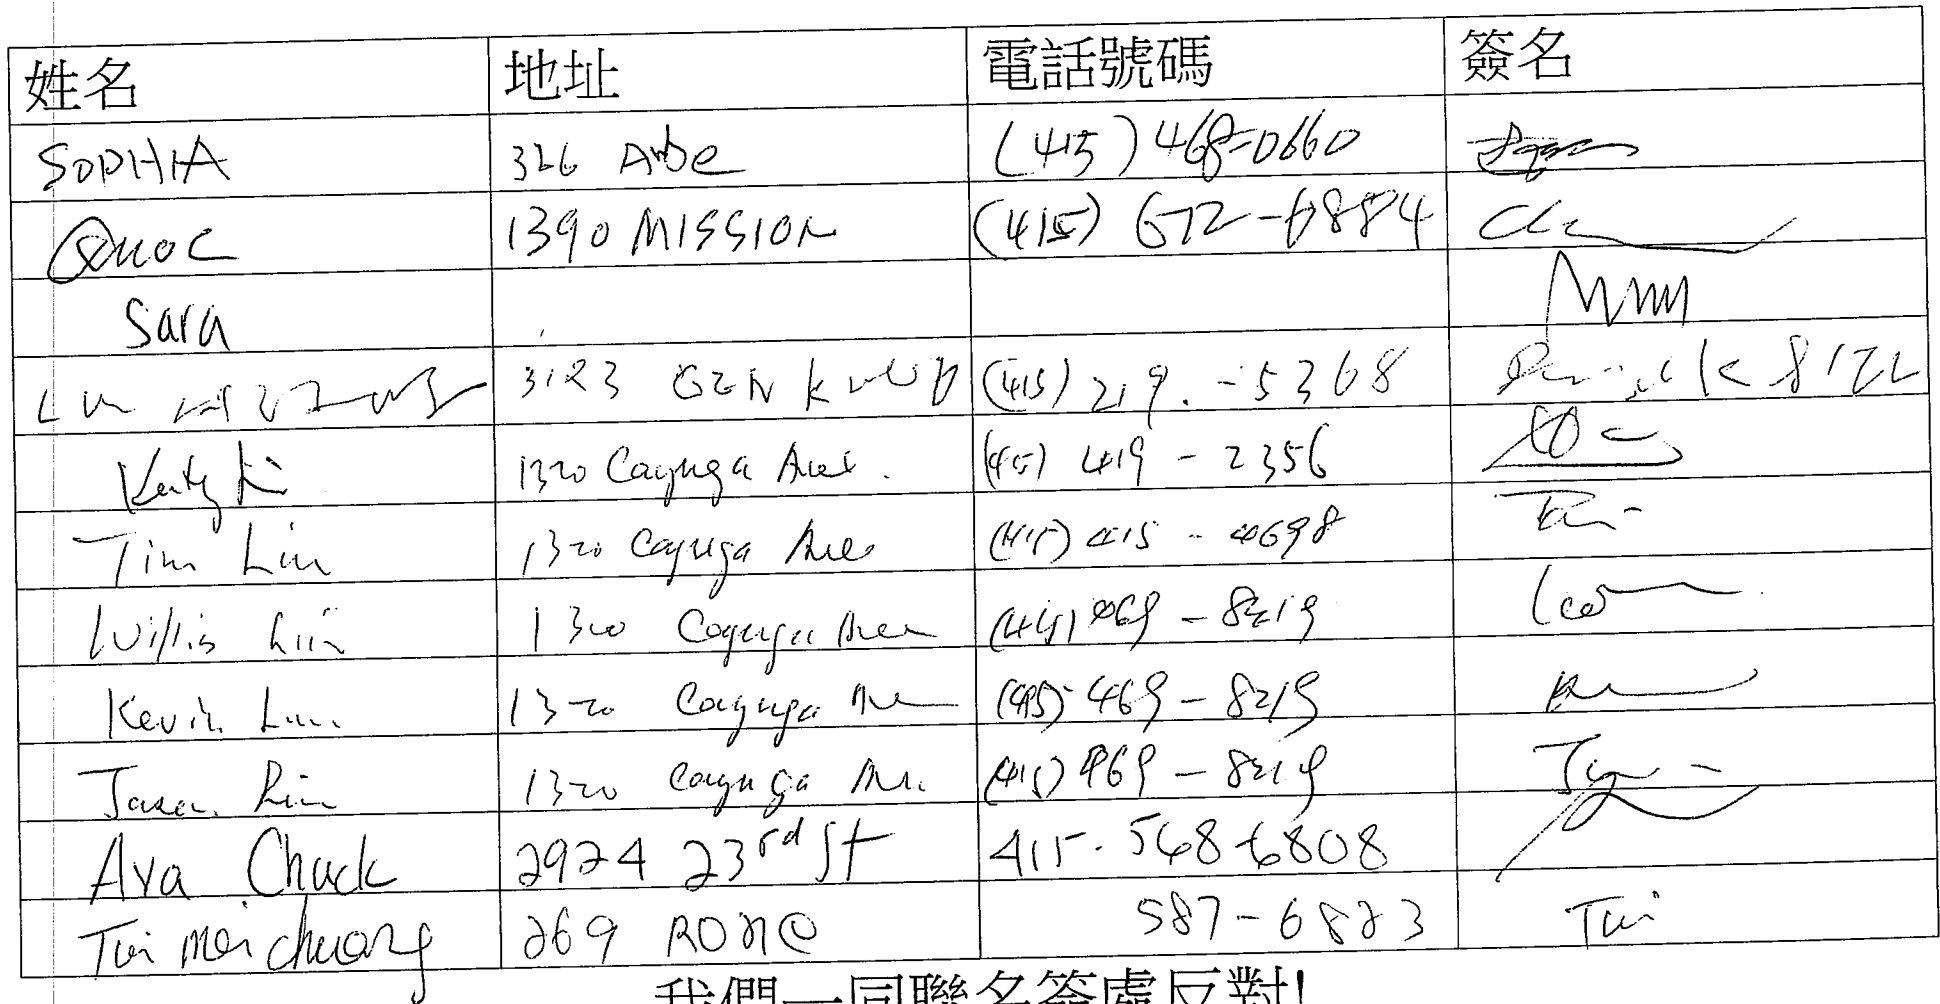 姓名 地址 電話號碼 簽名
SOPHIA 326 (415) 468-0660
Quoc 1390 MISSION (415) 672-6884
Sara
3123 GEN (415) 219.-5368
Li 1320 Cayuga Ave. (415) 419-2356
Tim Lin 1320 Cayuga Ave (415) 415-4698 Tim
Willis Lin 1320 Cayuga Ave (415) 469-8219
Kevin Lin 1320 Cayuga Ave (415) 469-8219
Jason Lin 1320 Cayuga Ave. (415) 469-8219
Ava Chuck 2924 23rd St 415-568-6808
Tui mei chuang 269 ROME 587-6823 Tui
我們一同聯名簽處反對!